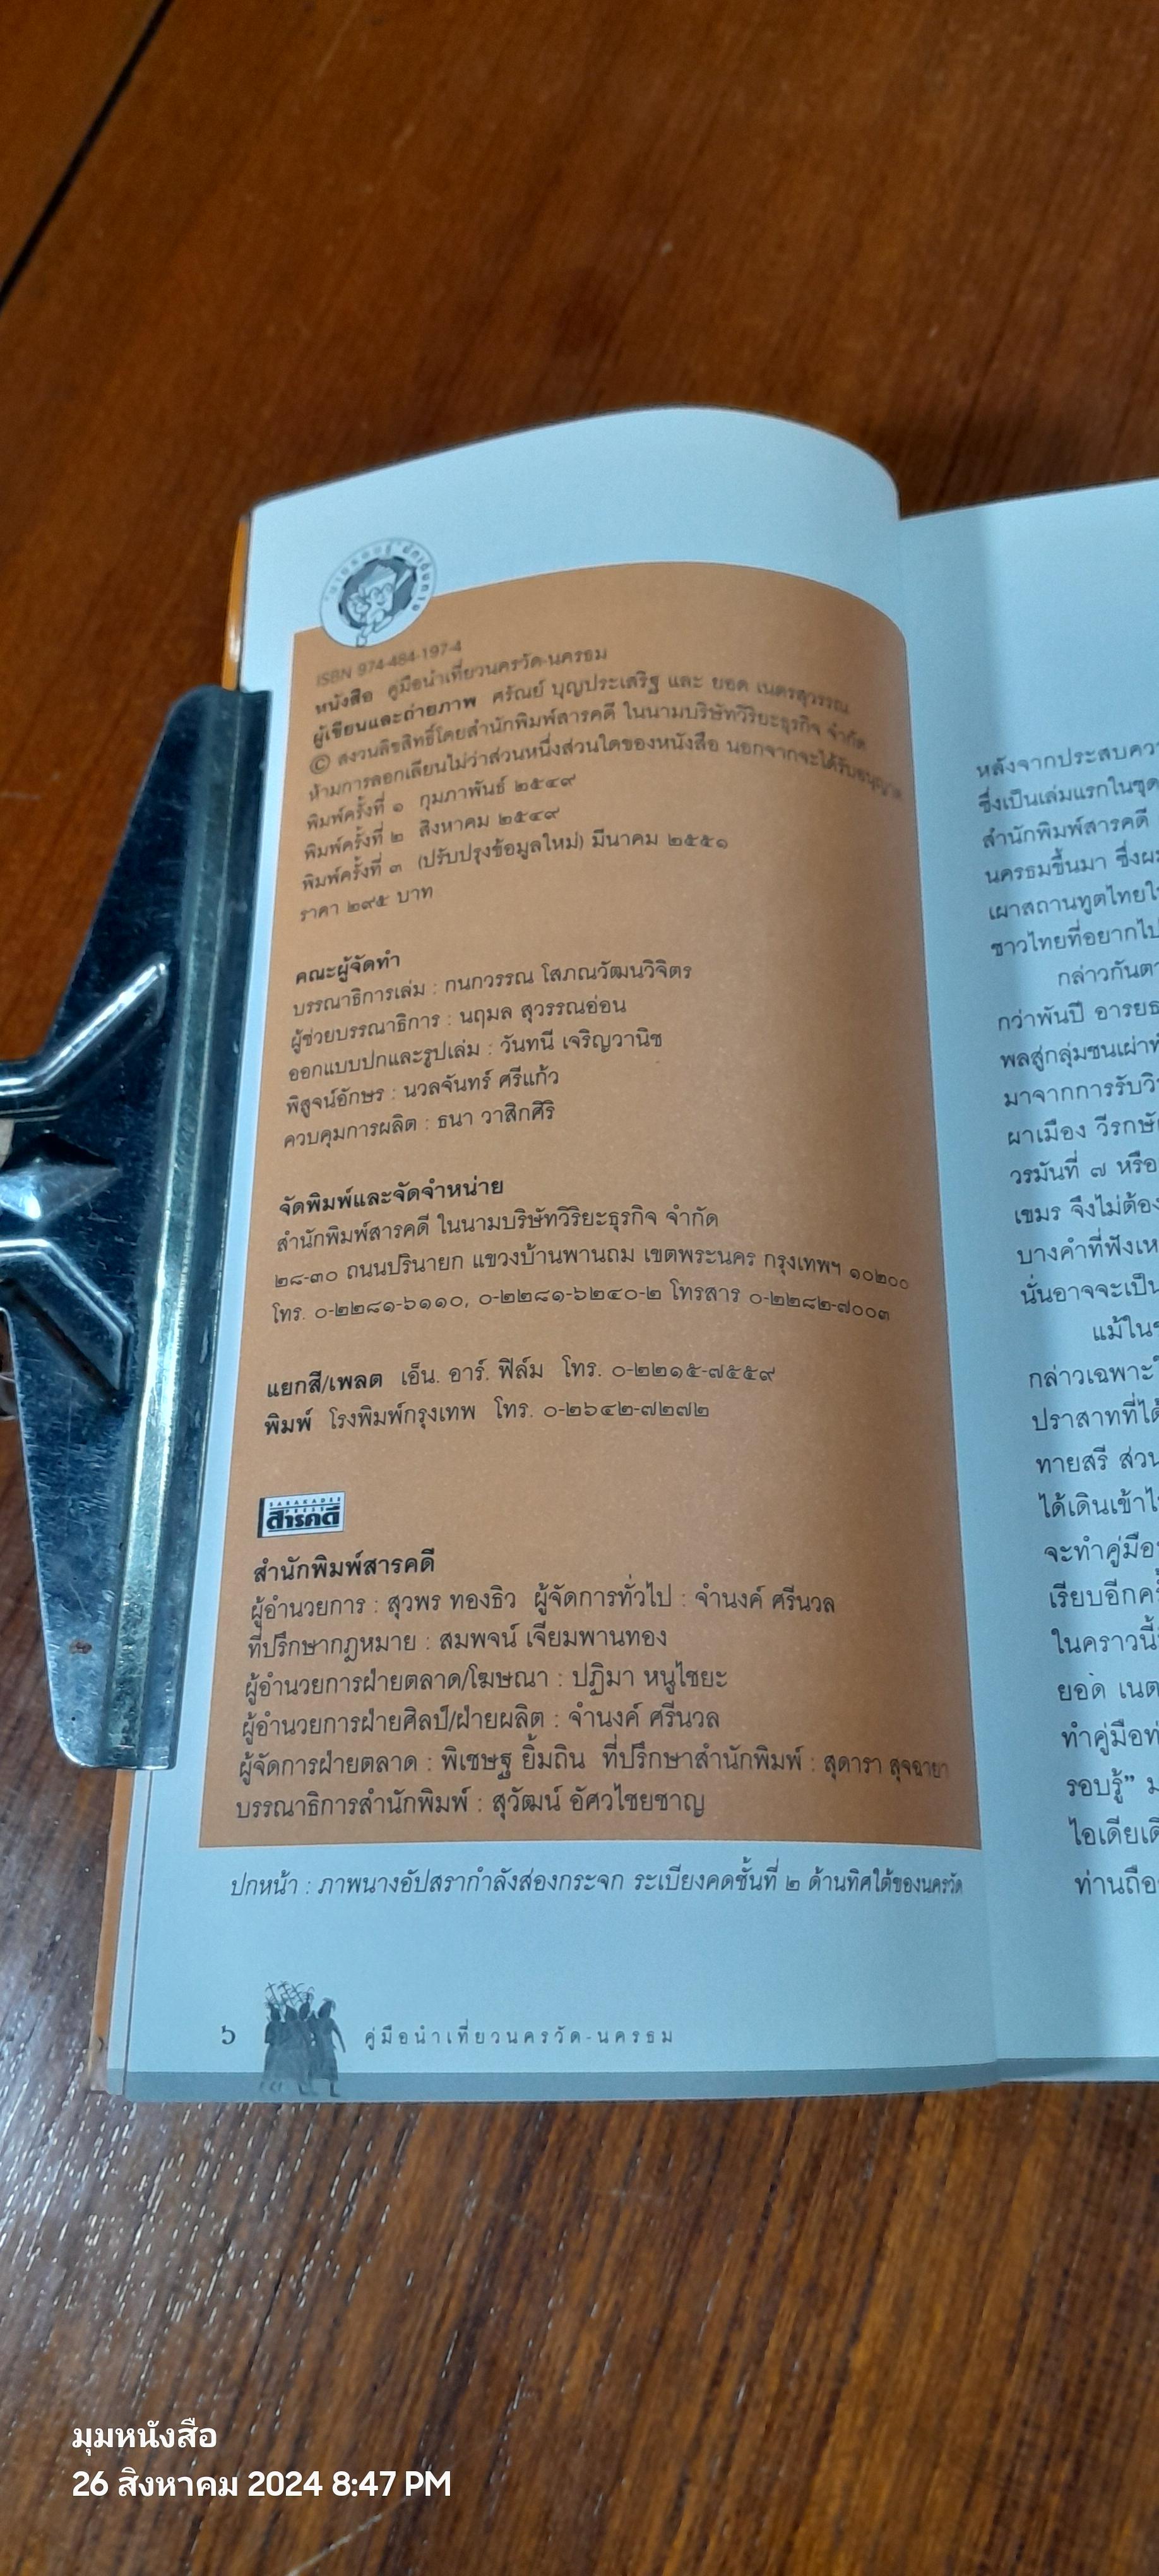 ISBN 974-484-197-4
หนังสือ คู่มือนำเที่ยวนครวัด-นครธม
ผู้เขียนและถ่ายภาพ ศรัณย์ บุญประเสริฐ และ ยอด เนตรสุวรรณ
© สงวนลิขสิทธิ์โดยสำนักพิมพ์สารคดี ในนามบริษัทวิริยะธุรกิจ จำกัด
ห้ามการลอกเลียนไม่ว่าส่วนหนึ่งส่วนใดของหนังสือ นอกจากจะได้รับอนุญาต
พิมพ์ครั้งที่ ๑ กุมภาพันธ์ ๒๕๔๙
พิมพ์ครั้งที่ ๒ สิงหาคม ๒๕๔๙
พิมพ์ครั้งที่ ๓ (ปรับปรุงข้อมูลใหม่) มีนาคม ๒๕๕๑
ราคา ๒๙๕ บาท
คณะผู้จัดทำ
บรรณาธิการเล่ม : กนกวรรณ โสภณวัฒนวิจิตร
ผู้ช่วยบรรณาธิการ : นฤมล สุวรรณอ่อน
ออกแบบปกและรูปเล่ม : วันทนี เจริญวานิช
พิสูจน์อักษร : นวลจันทร์ ศรีแก้ว
ควบคุมการผลิต : ธนา วาสิกศิริ
จัดพิมพ์และจัดจำหน่าย
สำนักพิมพ์สารคดี ในนามบริษัทวิริยะธุรกิจ จำกัด
๒๘-๓๐ ถนนปรินายก แขวงบ้านพานถม เขตพระนคร กรุงเทพฯ ๑๐๒๐๐
โทร. ๐-๒๒๘๑-๖๑๑๐, ๐-๒๒๘๑-๖๒๔๐-๒ โทรสาร ๐-๒๒๘๒-๗๐๐๓
แยกสี/เพลต เอ็น. อาร์. ฟิล์ม โทร. ๐-๒๒๑๕-๗๕๕๙
พิมพ์ โรงพิมพ์กรุงเทพ โทร. ๐-๒๖๔๒-๗๒๗๒
SARAKADEE
PRESS
สารคดี
สำนักพิมพ์สารคดี
ผู้อำนวยการ : สุวพร ทองธิว ผู้จัดการทั่วไป : จำนงค์ ศรีนวล
ที่ปรึกษากฎหมาย : สมพจน์ เจียมพานทอง
ผู้อำนวยการฝ่ายตลาด/โฆษณา : ปฏิมา หนูไชยะ
ผู้อำนวยการฝ่ายศิลป์/ฝ่ายผลิต : จำนงค์ ศรีนวล
ผู้จัดการฝ่ายตลาด : พิเชษฐ ยิ้มถิน ที่ปรึกษาสำนักพิมพ์ : สุดารา สุจฉายา
บรรณาธิการสำนักพิมพ์ : สุวัฒน์ อัศวไชยชาญ
ปกหน้า : ภาพนางอัปสรากำลังส่องกระจก ระเบียงคดชั้นที่ ๒ ด้านทิศใต้ของนครวัด
๖ คู่มือนำเที่ยวนครวัด-นครธม
หลังจากประสบควา
ซึ่งเป็นเล่มแรกในชุด
สำนักพิมพ์สารคดี
นครธมขึ้นมา ซึ่งผม
เผาสถานทูตไทยใ
ชาวไทยที่อยากไป
กล่าวกันตา
กว่าพันปี อารยธ
พลสู่กลุ่มชนเผ่าพั
มาจากการรับวั
ผาเมือง วีรกษั
วรมันที่ ๗ หรือ
เขมร จึงไม่ต้อง
บางคำที่ฟังเห
นั่นอาจจะเป็น
แม้ใน
กล่าวเฉพาะ
ปราสาทที่ได้
ทายสรี ส่วน
ได้เดินเข้าไป
จะทำคู่มือ
เรียบอีกครั้
ในคราวนี้
ยอด เนต
ทำคู่มือท่
รอบรู้” ม
ไอเดียเดี
ท่านถือ
มุมหนังสือ
26 สิงหาคม 2024 8:47 PM